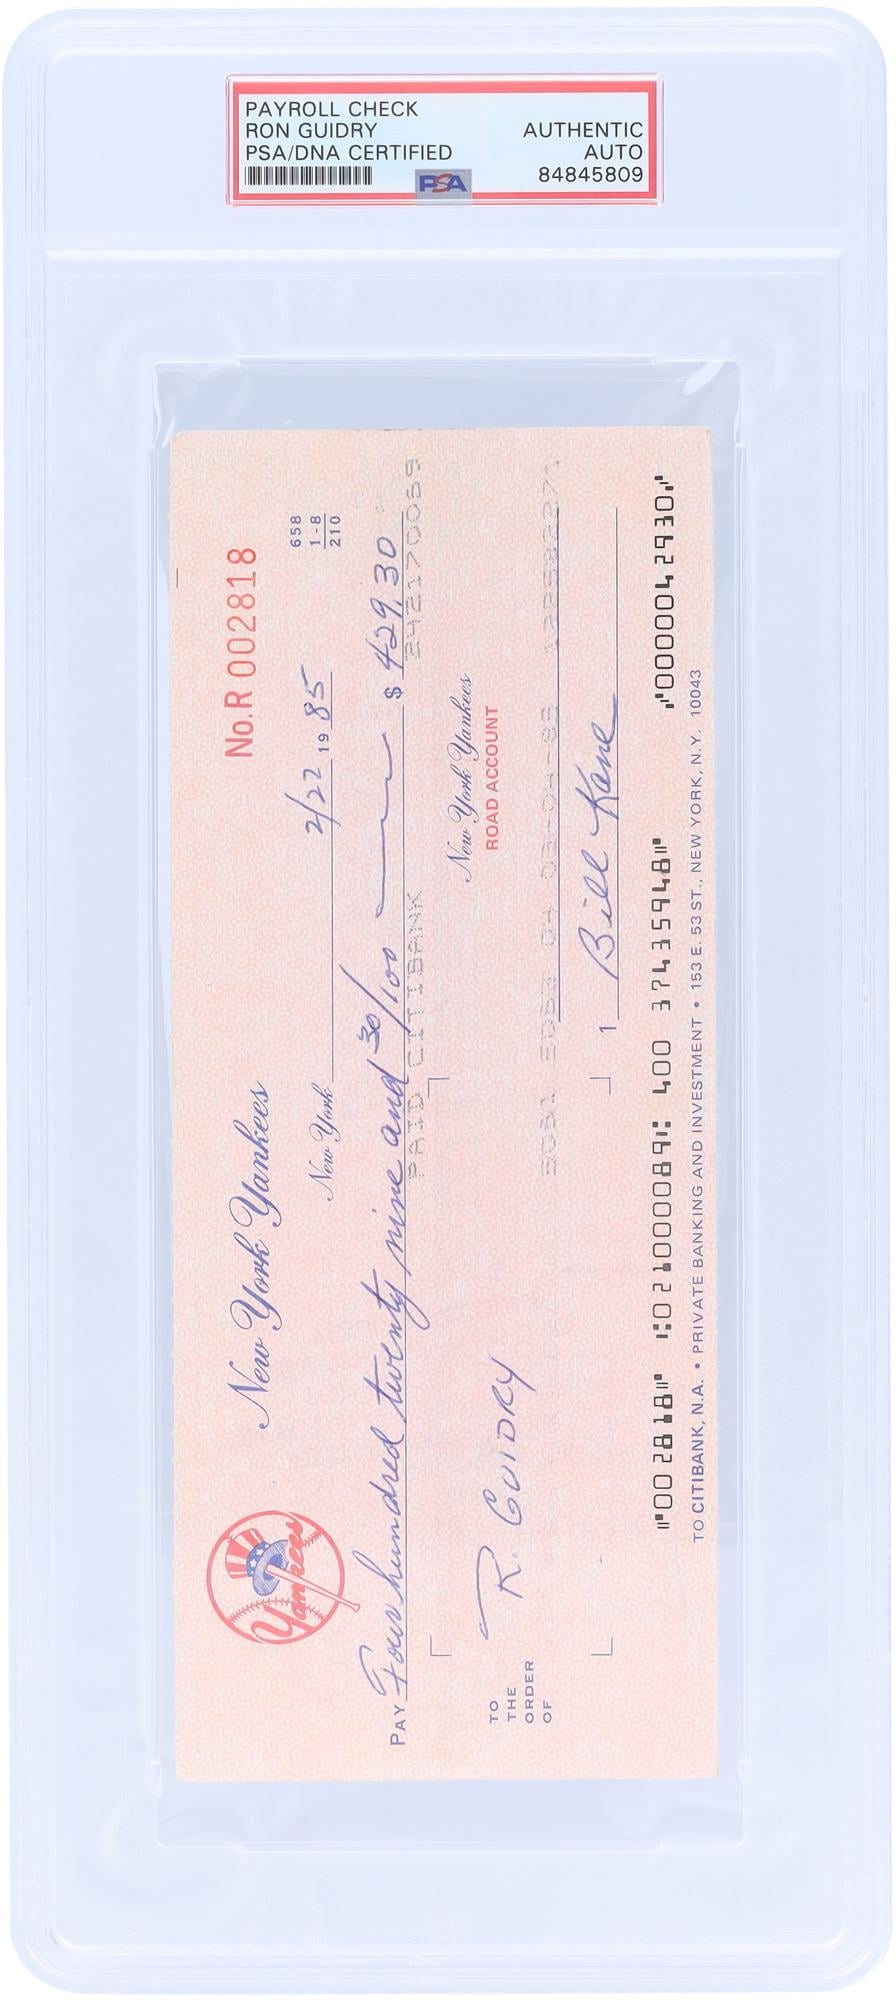 PAYROLL CHECK
RON GUIDRY
PSA/DNA CERTIFIED
AUTHENTIC
AUTO
84845809
PSA
No. R 002818
658
1-8
210
Yankees
New York Yankees
New York 2/22 1985
PAY Four hundred twenty nine and 30/100 $ 429.30
PAID CITIBANK
TO
THE
ORDER
OF
R. GUIDRY
New York Yankees
ROAD ACCOUNT
1 Bill Kane
⑈002818⑈ ⑆021000089⑆ 400 37435948⑈ ⑈0000042930⑈
TO CITIBANK, N.A. • PRIVATE BANKING AND INVESTMENT • 153 E. 53 ST., NEW YORK, N.Y. 10043